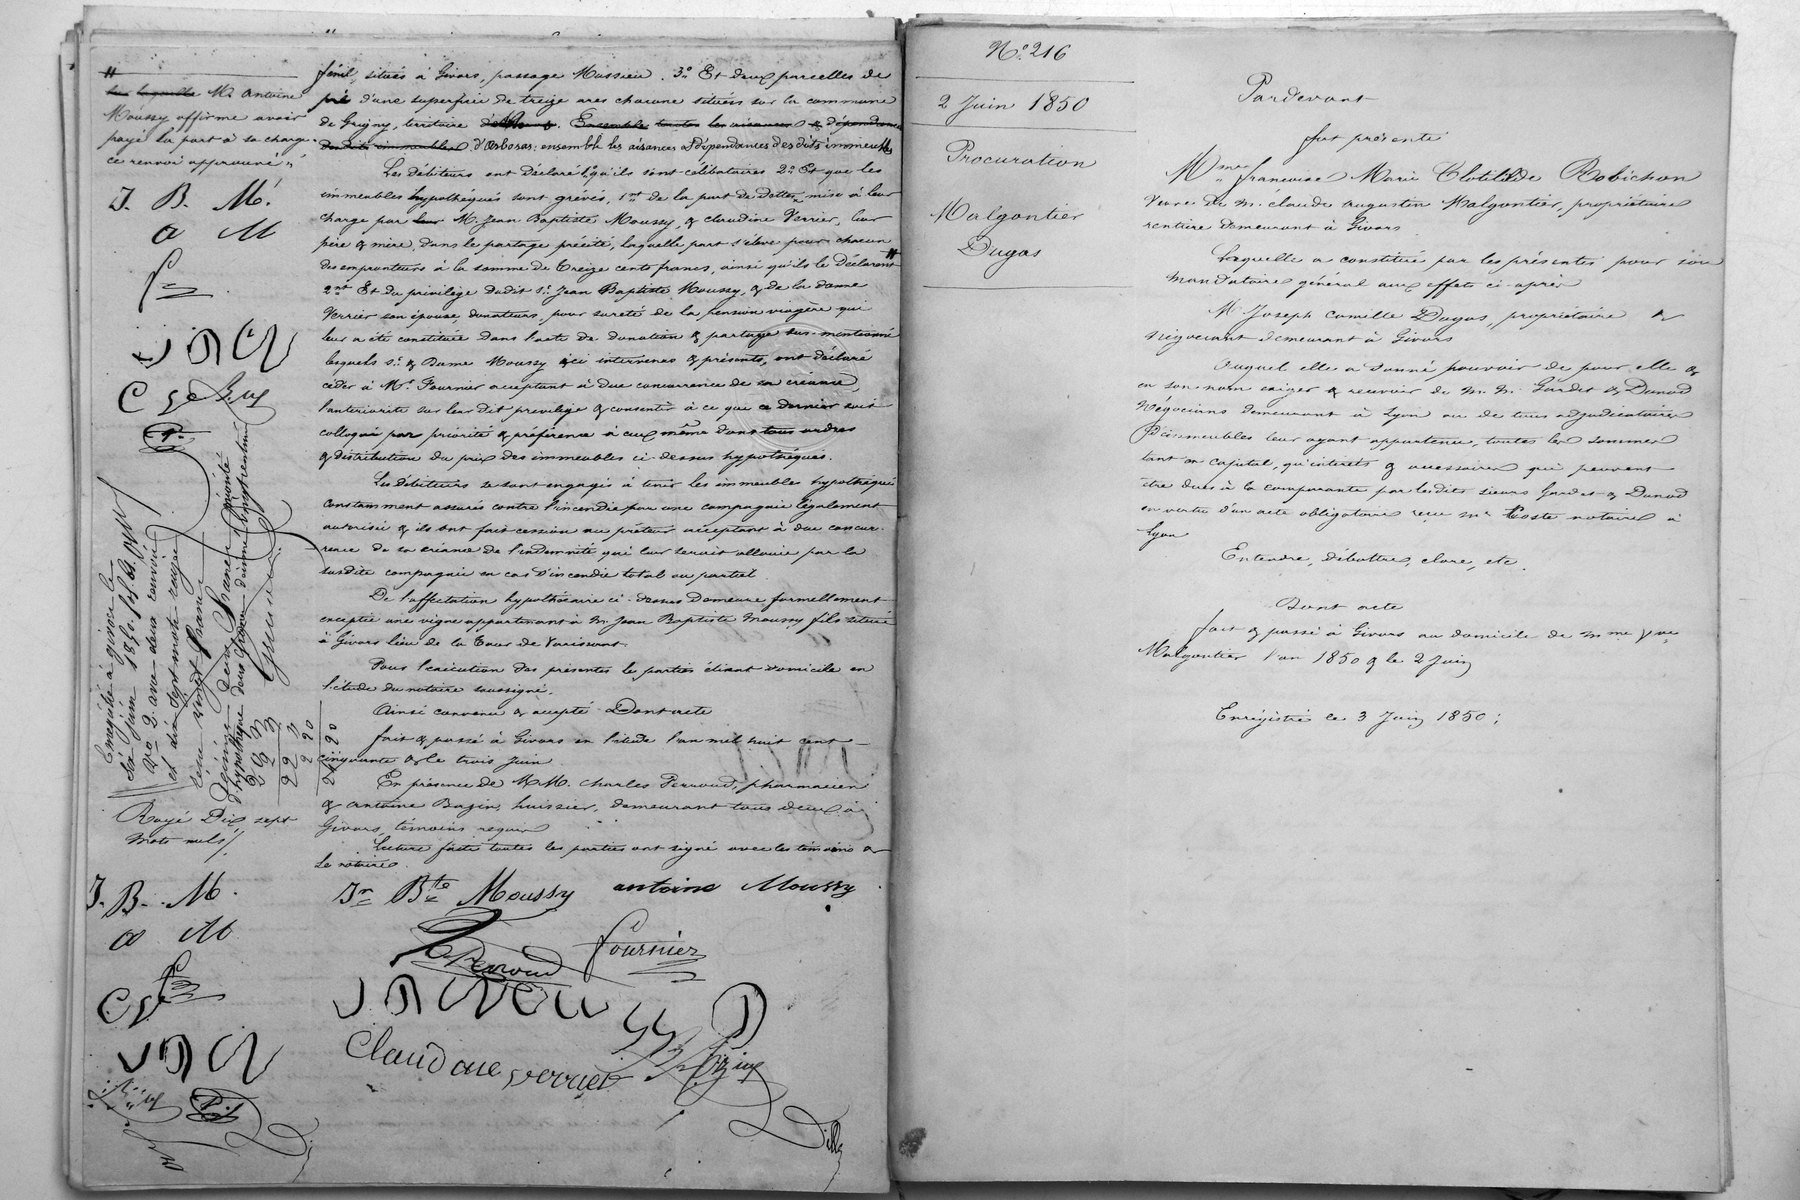 M. Antoine
Moussy affirme avoir
payé la part à sa charge
ce renvoi approuvé
J. B. M.
a M
Enregistré à Givors le
juin 1850. fol. 61.
et dix sept mots rayés
Rayé Dix sept
mots nuls
J. B. M.
a M
fénil, situés à Givors, passage Massieu. 3.° Et deux parcelles de
pré d'une superficie de treize ares chacune situées sur la commune
de Grigny, territoire Ensemble toutes les aisances & dépendances
desdits immeubles d'Arboras; ensemble les aisances & dépendances des dits immeubles
Les débiteurs ont déclaré 1.° qu'ils sont célibataires 2.° Et que les
immeubles hypothéqués sont grévés, 1.nt de la part de Dettes mise à leur
charge par leur M. Jean Baptiste Moussy, & Claudine Verrier, leur
père & mère, dans le partage précité, laquelle part s'élève pour chacun
des emprunteurs à la somme de Treize cents francs, ainsi qu'ils le Déclarent
2.nt Et du privilège dudit s.r Jean Baptiste Moussy, & de la dame
Verrier son épouse, donateurs, pour sureté de la pension viagère qui
leur a été constituée dans l'acte de donation & partage sus-mentionné
lesquels s.r & Dame Moussy ici intervenus & présents, ont déclaré
céder à M.r Fournier acceptant à due concurrence de sa créance,
l'antériorité sur leur dit privilège & consentir à ce que ce dernier soit
colloqué par priorité & préférence à eux même dans tous ordres
& distribution du prix des immeubles ci-dessus hypothéqués.
Les débiteurs se sont engagés à tenir les immeubles hypothéqués
constamment assurés contre l'incendie par une compagnie légalement
autorisée & ils ont fait cession au prêteur acceptant à due concur-
rence de sa créance de l'indemnité qui leur serait allouée par la
susdite compagnie en cas d'incendie total ou partiel.
De l'affectation hypothécaire ci-dessus Demeure formellement
exceptée une vigne appartenant à M. Jean Baptiste Moussy fils située
à Givors lieu de la Tour de Varissant.
Pour l'exécution des présentes les parties élisent domicile en
l'étude du notaire soussigné.
Ainsi convenu & accepté Dont acte
fait & passé à Givors en l'étude l'an mil huit cent
cinquante & le trois Juin
En présence de M.M. Charles Perroud, pharmacien
& Antoine Bazin, huissier, demeurant tous deux à
Givors, témoins requis
Lecture faite toutes les parties ont signé avec les témoins &
le notaire.
Jn Bte Moussy antoine Moussy
Perroud Fournier
Claudine verrier
N.° 216
2 Juin 1850
Procuration
Malgontier
Dugas
Pardevant
fut présente
Mme françoise Marie Clotilde Robichon
Veuve de M. Claude Augustin Malgontier, propriétaire
rentière demeurant à Givors.
Laquelle a constitué par les présentes pour son
mandataire général aux effets ci-après
M. Joseph Camille Dugas, propriétaire &
négociant demeurant à Givors
Auquel elle a donné pouvoir de pour elle &
en son nom exiger & recevoir de M. M. Gardet & Dunod
négociants demeurant à Lyon ou de tous adjudicataires
d'immeubles leur ayant appartenus, toutes les sommes
tant en capital, qu'intérêts & accessoires qui peuvent
être dues à la comparante par lesdits sieurs Gardet & Dunod
en vertu d'un acte obligatoire reçu Mr Coste notaire à
Lyon
Entendre, débattre, clore, etc.
Dont acte
fait & passé à Givors au domicile de Mme Vve
Malgontier l'an 1850 & le 2 Juin
Enrégistré le 3 Juin 1850;